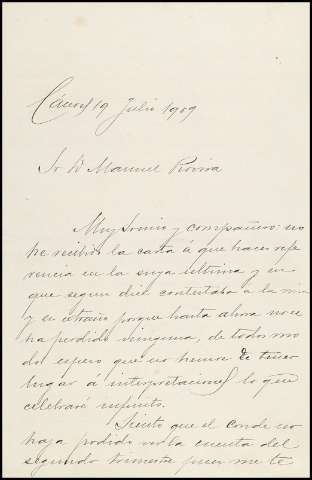 Cáceres 19 Julio 1909
Sr D Manuel Rovira
Muy Sr mio y compañero: no
he recibido la carta á que hace refe
rencia en la suya última y en
que segun dice contestaba a la mia
y es extraño porque hasta ahora no se
ha perdido ninguna, de todos mo
dos espero que no heme de tener
lugar á interpretaciones lo que
celebraré infinito.
Siento que el conde no
haja podido ver la cuenta del
segundo trimestre pues me te